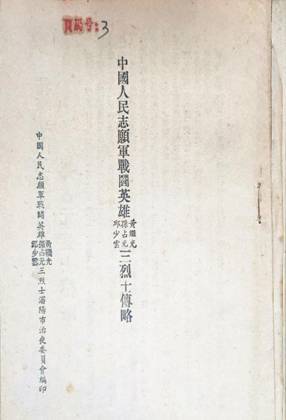 3
中國人民志願軍戰鬪英雄黃繼光孫占元邱少雲三烈士傳略
中國人民志願軍戰鬪英雄黃繼光孫占元邱少雲三烈士瀋陽市治喪委員會編印